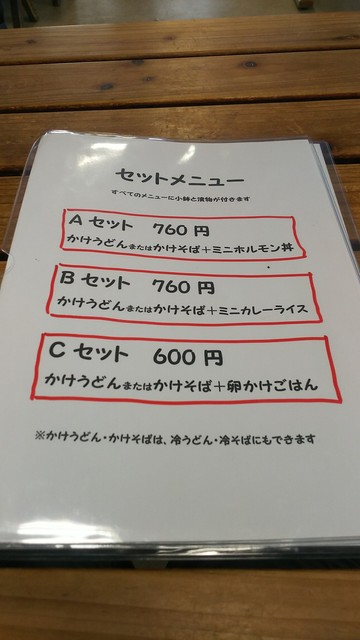 セットメニュー
すべてのメニューに小鉢と漬物が付きます
A セット 760 円
かけうどんまたはかけそば+ミニホルモン丼
B セット 760 円
かけうどんまたはかけそば+ミニカレーライス
C セット 600 円
かけうどんまたはかけそば+卵かけごはん
※かけうどん・かけそばは、冷うどん・冷そばにもできます